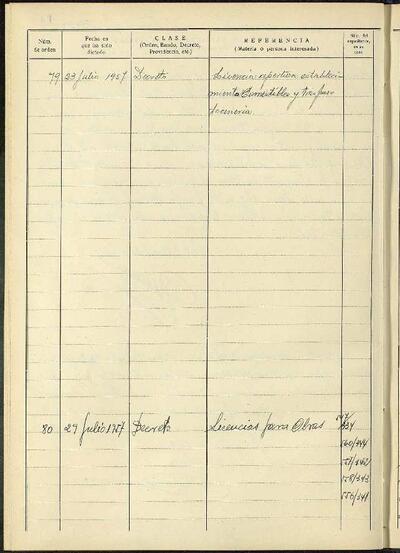 Núm. de orden
Fecha en que ha sido dictado
CLASE
(Orden, Bando, Decreto, Providencia, etc.)
REFERENCIA
(Materia o persona interesada)
Núm. del expediente, en su caso
79 23 Julio 1957 Decreto Licencia apertura estableci-
miento Comestibles y traspaso
80 29 Julio 1957 Decreto Licencias para Obras
560/344
558/343
550/341